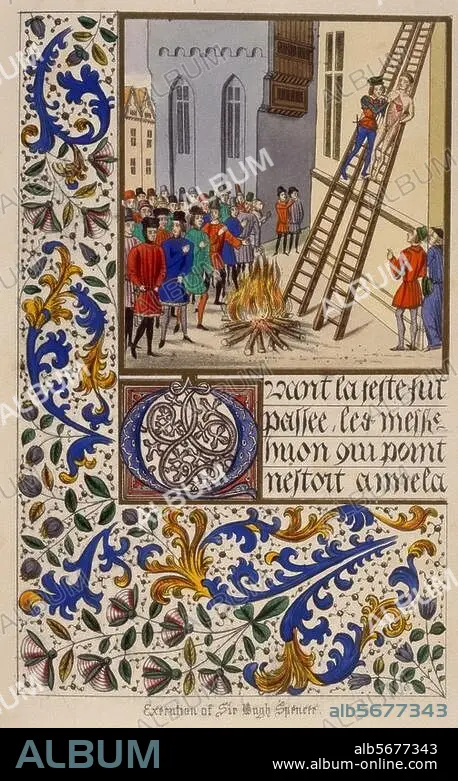 Quant la feste fut
passee, les messe
huon qui point
nestoit aimela
Execution of Sir Hugh Spencer.
alb5677343
ALBUM
alb5677343
album-online.com